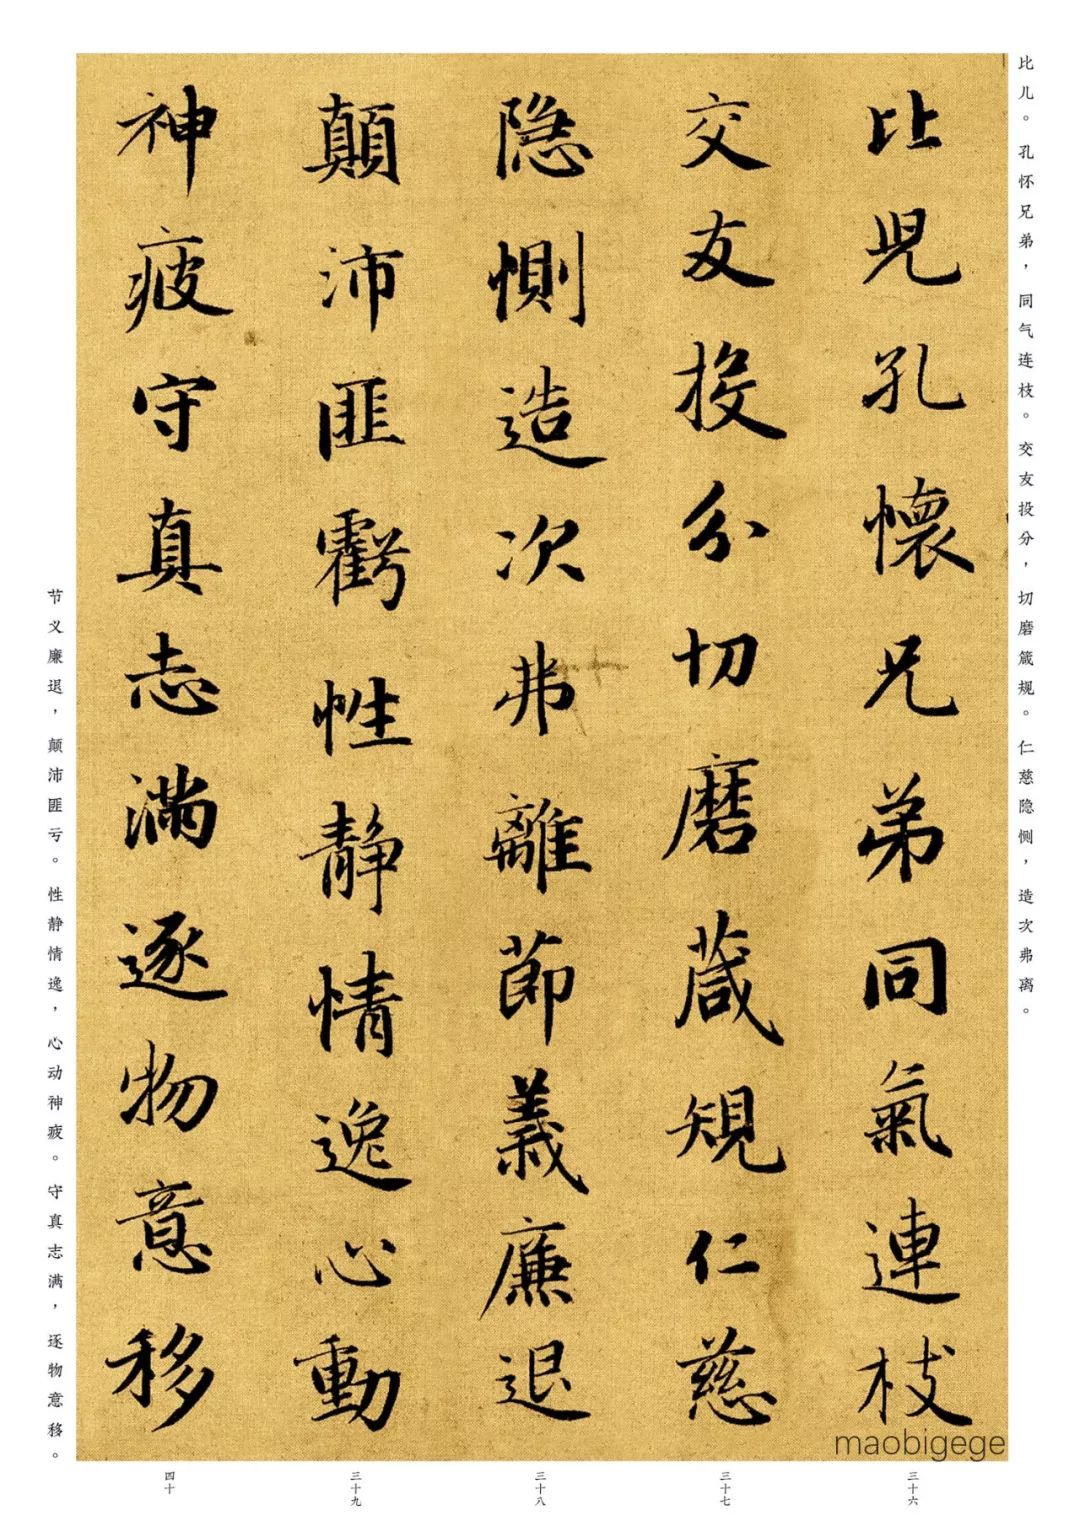 比儿。孔怀兄弟，同气连枝。交友投分，切磨箴规。仁慈隐恻，造次弗离。
比兒孔懷兄弟同氣連枝
交友投分切磨箴規仁慈
隐惻造次弗離節義廉退
顛沛匪虧性靜情逸心動
神疲守真志滿逐物意移
节义廉退，颠沛匪亏。性静情逸，心动神疲。守真志满，逐物意移。
maobigege
三十六
三十七
三十八
三十九
四十